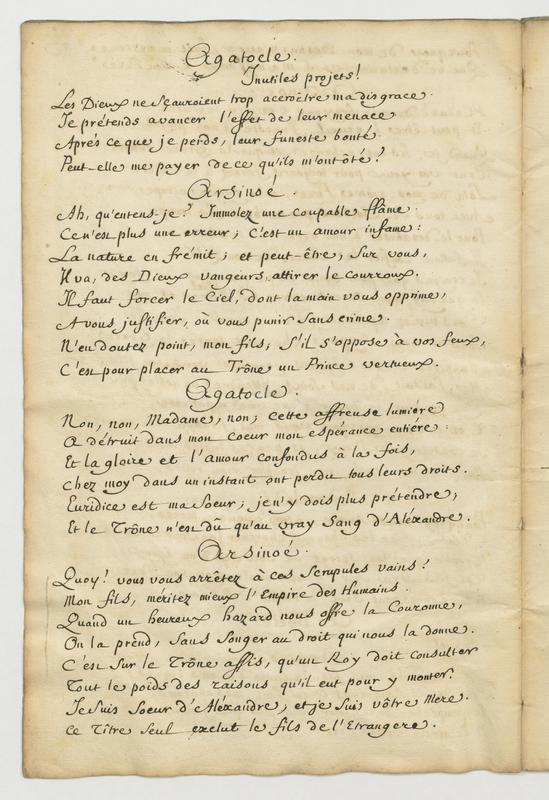 Agatocle.
Inutiles projets!
Les Dieux ne sçauroient trop accroêtre ma disgrace.
Je prétends avancer l'effet de leur menace
Aprés ce que je perds, leur funeste bonté
Peut-elle me payer de ce qu'ils m'ont ôté?
Arsinoé.
Ah, qu'entens-je? Immolez une coupable flâme.
Ce n'est plus une erreur; c'est un amour infame:
La nature en frémit; et peut-être, sur vous,
Il va, des Dieux vangeurs, attirer le courroux.
Il faut forcer le Ciel, dont la main vous opprime,
A vous justifier, où vous punir sans crime.
N'en doutez point, mon fils; s'il s'oppose à vos feux,
C'est pour placer au Trône un Prince vertueux.
Agatocle.
Non, non, Madame, non; cette affreuse lumiére
A détruit dans mon coeur mon espérance entiere:
Et la gloire et l'amour confondus à la fois,
Chez moy dans un instant ont perdu tous leurs droits.
Euridice est ma Soeur; je n'y dois plus prétendre;
Et le Trône n'est dû qu'au vray Sang d'Aléxandre.
Arsinoé.
Quoy! vous vous arrêtez à ces Scrupules vains!
Mon fils, méritez mieux l'Empire des Humains.
Quand un heureux hazard nous offre la Couronne,
On la prend, sans songer au droit qui nous la donne.
C'est sur le Trône assis, qu'un Roy doit consulter
Tout le poids des raisons qu'il eut pour y monter.
Je suis Soeur d'Aléxandre, et je suis vôtre Mere.
Ce Titre seul exclut le fils de l'Etrangere.